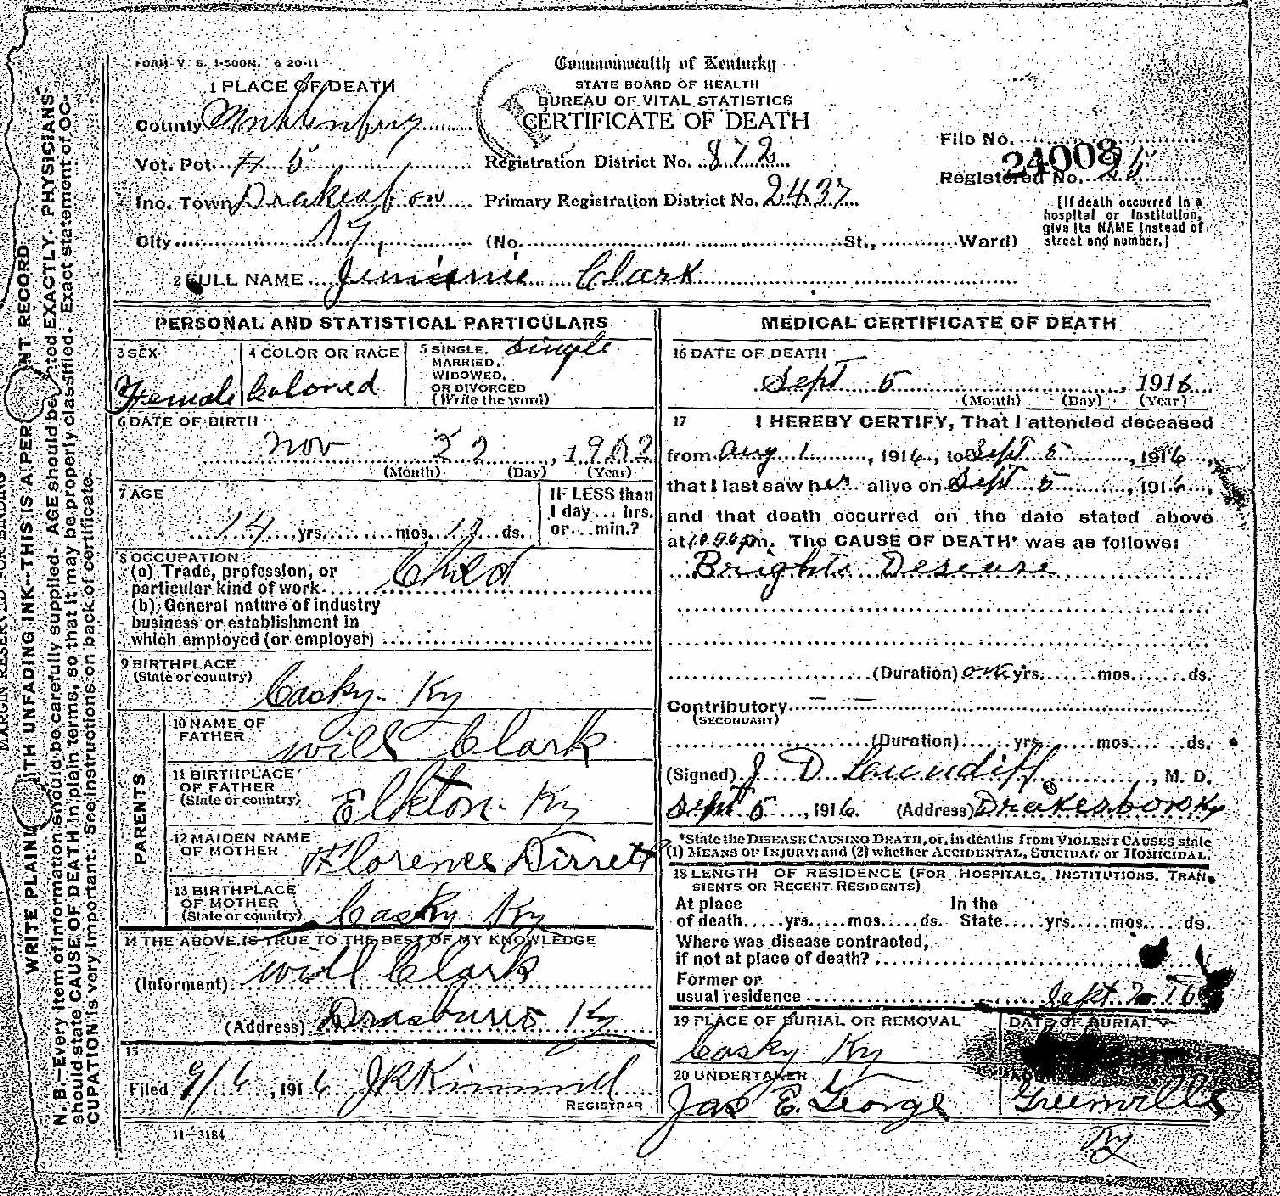 FORM V. S. 1-500M. 9 20-11
Commonwealth of Kentucky
STATE BOARD OF HEALTH
BUREAU OF VITAL STATISTICS
CERTIFICATE OF DEATH
1 PLACE OF DEATH
County Muhlenburg
Vot. Pct. # 5
Inc. Town Drakesboro
City Ky, (No. St., Ward)
Registration District No. 872
Primary Registration District No. 2437
File No. 24008
Registered No. 25
[If death occurred in a
hospital or institution,
give its NAME instead of
street and number.]
2 FULL NAME Jimmie Clark
PERSONAL AND STATISTICAL PARTICULARS
3 SEX
Female
4 COLOR OR RACE
Colored
5 SINGLE, single
MARRIED,
WIDOWED,
OR DIVORCED
(Write the word)
6 DATE OF BIRTH
Nov 22, 1902
(Month) (Day) (Year)
7 AGE
14 yrs. mos. ds.
IF LESS than
1 day... hrs.
or... min.?
8 OCCUPATION
(a) Trade, profession, or
particular kind of work Child
(b) General nature of industry
business or establishment in
which employed (or employer)
9 BIRTHPLACE
(State or country)
Casky Ky
PARENTS
10 NAME OF
FATHER
Will Clark
11 BIRTHPLACE
OF FATHER
(State or country)
Elkton Ky
12 MAIDEN NAME
OF MOTHER
Florence Dirrett
13 BIRTHPLACE
OF MOTHER
(State or country)
Casky Ky
14 THE ABOVE IS TRUE TO THE BEST OF MY KNOWLEDGE
(Informant) Will Clark
(Address) Ky
15
Filed 9/6, 1916 J R Kimmel
REGISTRAR
11-3184
MEDICAL CERTIFICATE OF DEATH
16 DATE OF DEATH
Sept 5, 1916
(Month) (Day) (Year)
17 I HEREBY CERTIFY, That I attended deceased
from Aug 1, 1916, to Sept 5, 1916
that I last saw her alive on Sept 5, 1916,
and that death occurred on the date stated above
at m. The CAUSE OF DEATH* was as follows:
Brights Desease
(Duration) one yrs. mos. ds.
Contributory
(SECONDARY)
(Duration) yrs. mos. ds.
(Signed) J D Cundiff, M. D.
Sept 5, 1916. (Address) Drakesboro Ky
*State the DISEASE CAUSING DEATH, or, in deaths from VIOLENT CAUSES state
(1) MEANS OF INJURY; and (2) whether ACCIDENTAL, SUICIDAL or HOMICIDAL.
18 LENGTH OF RESIDENCE (FOR HOSPITALS, INSTITUTIONS, TRAN-
SIENTS OR RECENT RESIDENTS)
At place In the
of death yrs. mos. ds. State yrs. mos. ds.
Where was disease contracted,
if not at place of death?
Former or
usual residence
Sept 7
19 PLACE OF BURIAL OR REMOVAL
Casky Ky
DATE OF BURIAL
20 UNDERTAKER
Jas E. George
Greenville
Ky
MARGIN RESERVED FOR BINDING
WRITE PLAINLY WITH UNFADING INK—THIS IS A PERMANENT RECORD
N. B.—Every item of information should be carefully supplied. AGE should be stated EXACTLY. PHYSICIANS
should state CAUSE OF DEATH in plain terms, so that it may be properly classified. Exact statement of OC-
CUPATION is very important. See instructions on back of certificate.